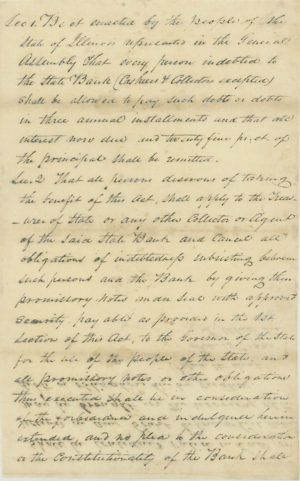 Sec 1. Be it enacted by the People of the
State of Illinois represented in the General
Assembly That every person indebted to
the State Bank (Cashiers & Collectors excepted)
shall be allowed to pay such debt or debts
in three annual instalments and that all
interest now due and twenty five pr. ct. of
the principal shall be remitted.
Sec. 2 That all persons desirous of taking
the benefit of this Act, shall apply to the Treas-
-urer of State or any other Collector or Agent
of the Said State Bank and Cancel all
obligations of indebtedness subsisting between
such persons and the Bank by giving their
promissory Notes under Seal with approved
Security payable as provided in the 1st
Section of this Act, to the Governor of the State
for the use of the people of the State, and
all promissory notes or other obligations
thus executed shall be in consideration
of the forbearance and indulgence herein
extended, and no plea to the consideration
or the Constitutionality of the Bank shall